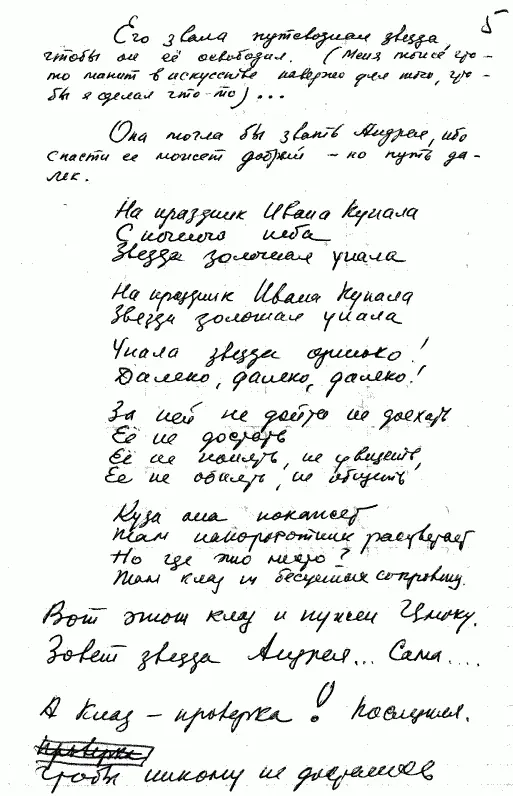 5
Его звала путеводная звезда,
чтобы он её освободил. (Меня тоже что-
то манит в искусстве наверно для того, что-
бы я сделал что-то)...
Она могла бы звать Андрея, ибо
спасти её может добрый – но путь да-
лек.
На праздник Ивана Купала
С ночного неба
Звезда золотая упала
На праздник Ивана Купала
Звезда золотая упала
Упала звезда одиноко!
Далеко, далеко, далеко!
За ней не дойти не доехать
Её не достать
Её не понять, не увидеть,
Её не обнять, не обидеть,
Куда она покажет
Там папоротник расцветает
Но где это место?
Там клад и бесценные сокровищ.
Вот этот клад и нужен Цмоку.
Зовет звезда Андрея... Сама....
А Клад – проверка! Последняя.
Проверка
Чтобы никому не достался